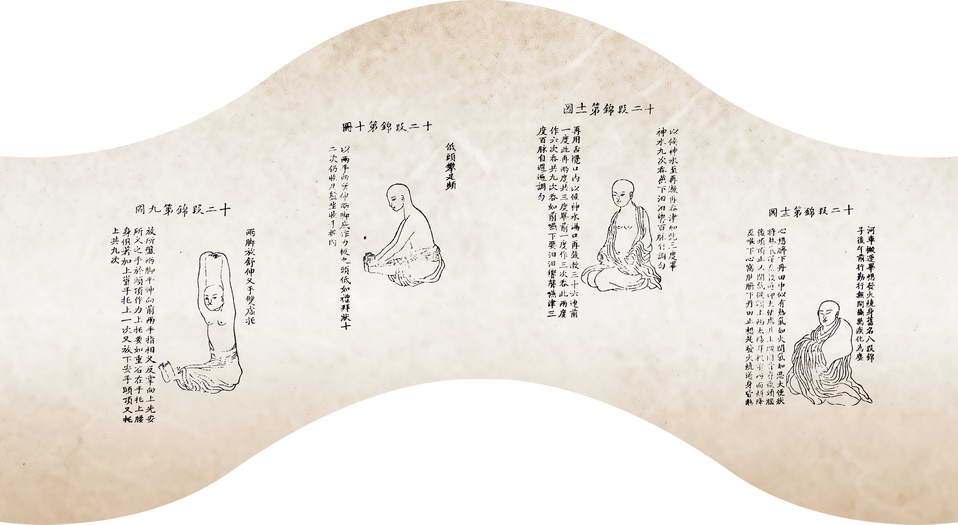 十二段錦第九圖
兩腳放舒伸叉手雙虛托
放所盤兩腳平伸向前兩手指相叉反掌向上先安
所叉之手於頭頂作力上托要如重石在手托上腰
身俱著力上聳手托上一次又放下安手頭頂又托
上共九次
十二段錦第十圖
低頭攀足頻
以兩手向所伸兩腳底作力扳之頭低如禮拜狀十
二次仍收足盤坐收手
十二段錦第十一圖
以候神水至再漱再吞津如此三度畢
神水九次吞嚥下汩汩響百脈自調勻
再用舌攪口內以候神水滿口再鼓漱三十六連前
一度此再兩度共三度畢前一度作三次吞此兩度
作六次吞共九次吞如前嚥下要汩汩響聲嚥津三
度百脈自週遍調勻
十二段錦第十二圖
河車搬運畢想發火燒身舊名八段錦
子後午前行勤行無間斷萬疾化為塵
心想臍下丹田中似有熱氣如火閉氣如忍大便狀
將熱氣運至穀道即大便處升上腰間背脊後頸腦
後頭頂止又閉氣從額上兩太陽耳根前兩面頰降
至喉下心窩肚臍下丹田止想是發火燒通身皆熱